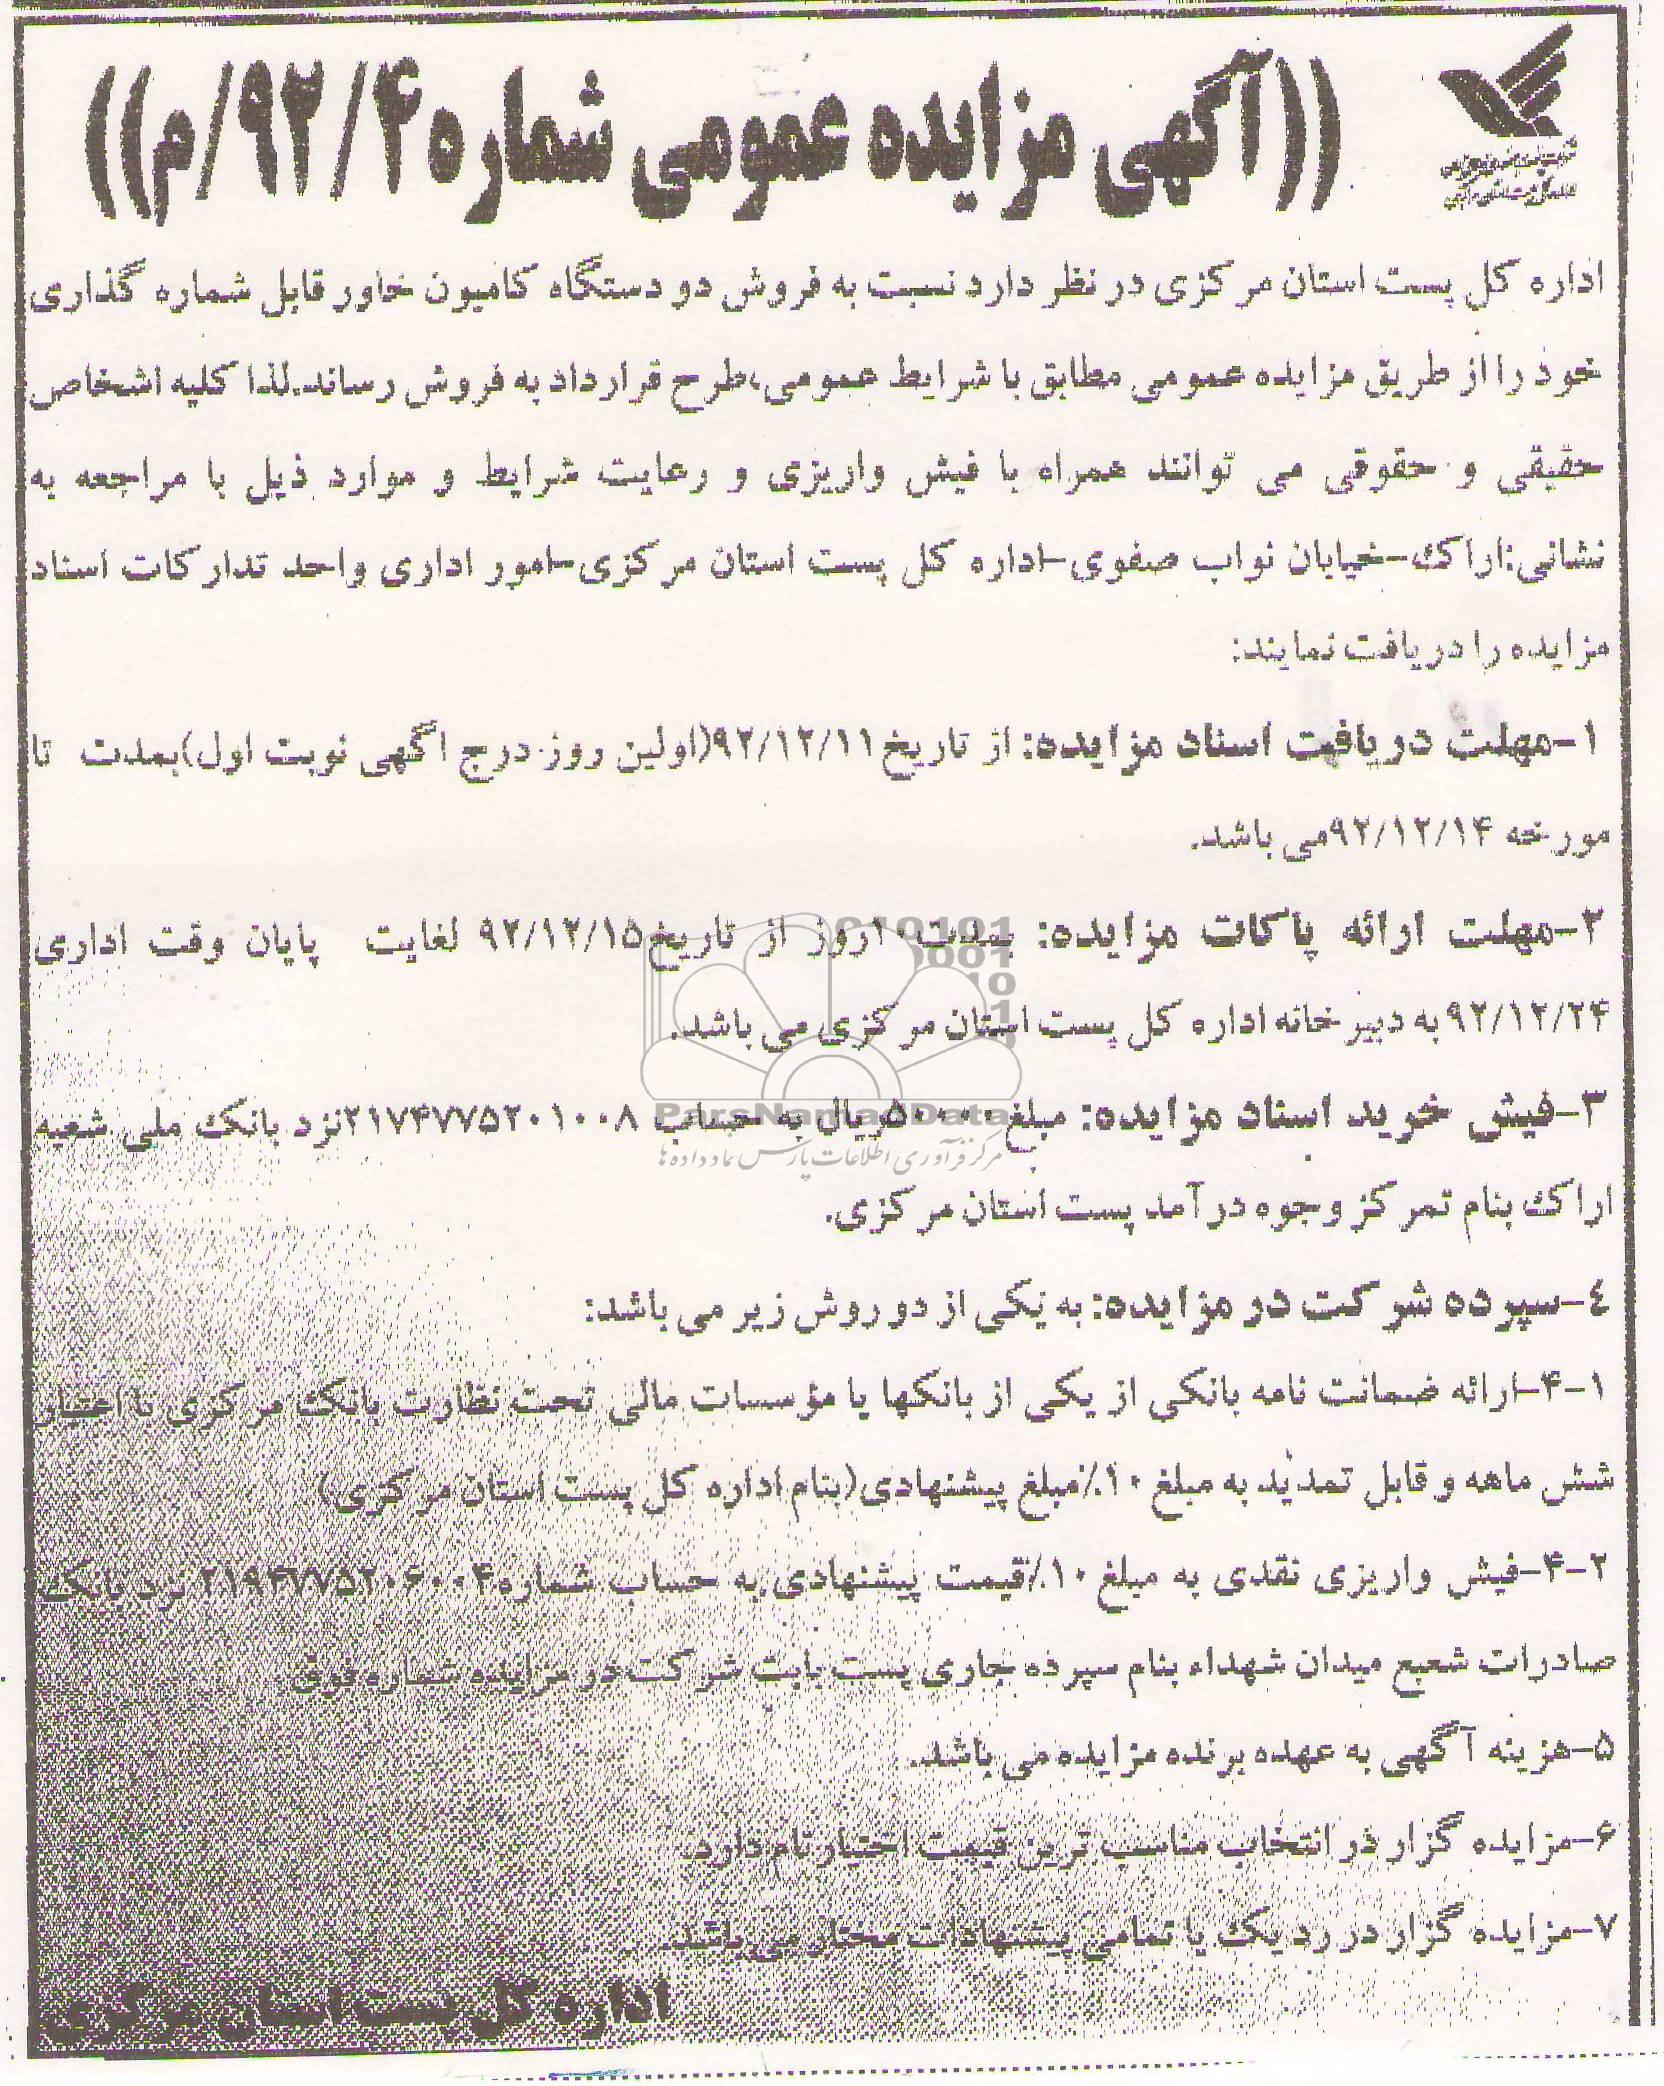 ((آگهی مزایده عمومی شماره ۹۲/۴/م))
اداره کل پست استان مرکزی در نظر دارد نسبت به فروش دو دستگاه کامیون خاور قابل شماره گذاری
خود را از طریق مزایده عمومی مطابق با شرایط عمومی،طرح قرارداد به فروش رساند.لذا کلیه اشخاص
حقیقی و حقوقی می توانند همراه با فیش واریزی و رعایت شرایط و موارد ذیل با مراجعه به
نشانی:اراک-خیابان نواب صفوی-اداره کل پست استان مرکزی-امور اداری واحد تدارکات اسناد
مزایده را دریافت نمایند:
۱-مهلت دریافت اسناد مزایده: از تاریخ ۹۲/۱۲/۱۱(اولین روز درج اگهی نوبت اول)بمدت تا
مورخه ۹۲/۱۲/۱۴می باشد.
۲-مهلت ارائه پاکات مزایده: بمدت ۱۰روز از تاریخ ۹۲/۱۲/۱۵ لغایت پایان وقت اداری
۹۲/۱۲/۲۴ به دبیرخانه اداره کل پست استان مرکزی می باشد.
۳-فیش خرید اسناد مزایده: مبلغ ریال به حساب ۲۱۷۴۷۷۵۲۰۱۰۰۸نزد بانک ملی شعبه
اراک بنام تمرکز وجوه درآمد پست استان مرکزی.
۴-سپرده شرکت در مزایده: به یکی از دو روش زیر می باشد:
۴-۱-ارائه ضمانت نامه بانکی از یکی از بانکها یا مؤسسات مالی تحت نظارت بانک مرکزی با اعتبار
شش ماهه و قابل تمدید به مبلغ ۱۰٪مبلغ پیشنهادی(بنام اداره کل پست استان مرکزی)
۴-۲-فیش واریزی نقدی به مبلغ ۱۰٪قیمت پیشنهادی به حساب شماره ۲۱۹۴۷۷۵۲۰۶۰۰۴ نزد بانک
صادرات شعبع میدان شهداء بنام سپرده جاری پست بابت شرکت در مزایده شماره فوق
۵-هزینه آگهی به عهده برنده مزایده می باشد.
۶-مزایده گزار در انتخاب مناسب ترین قیمت اختیار تام دارد.
۷-مزایده گزار در رد یک یا تمامی پیشنهادات مختار می باشد.
اداره کل پست استان مرکزی
ParsNamadData
مرکز فرآوری اطلاعات پارس نماد داده ها